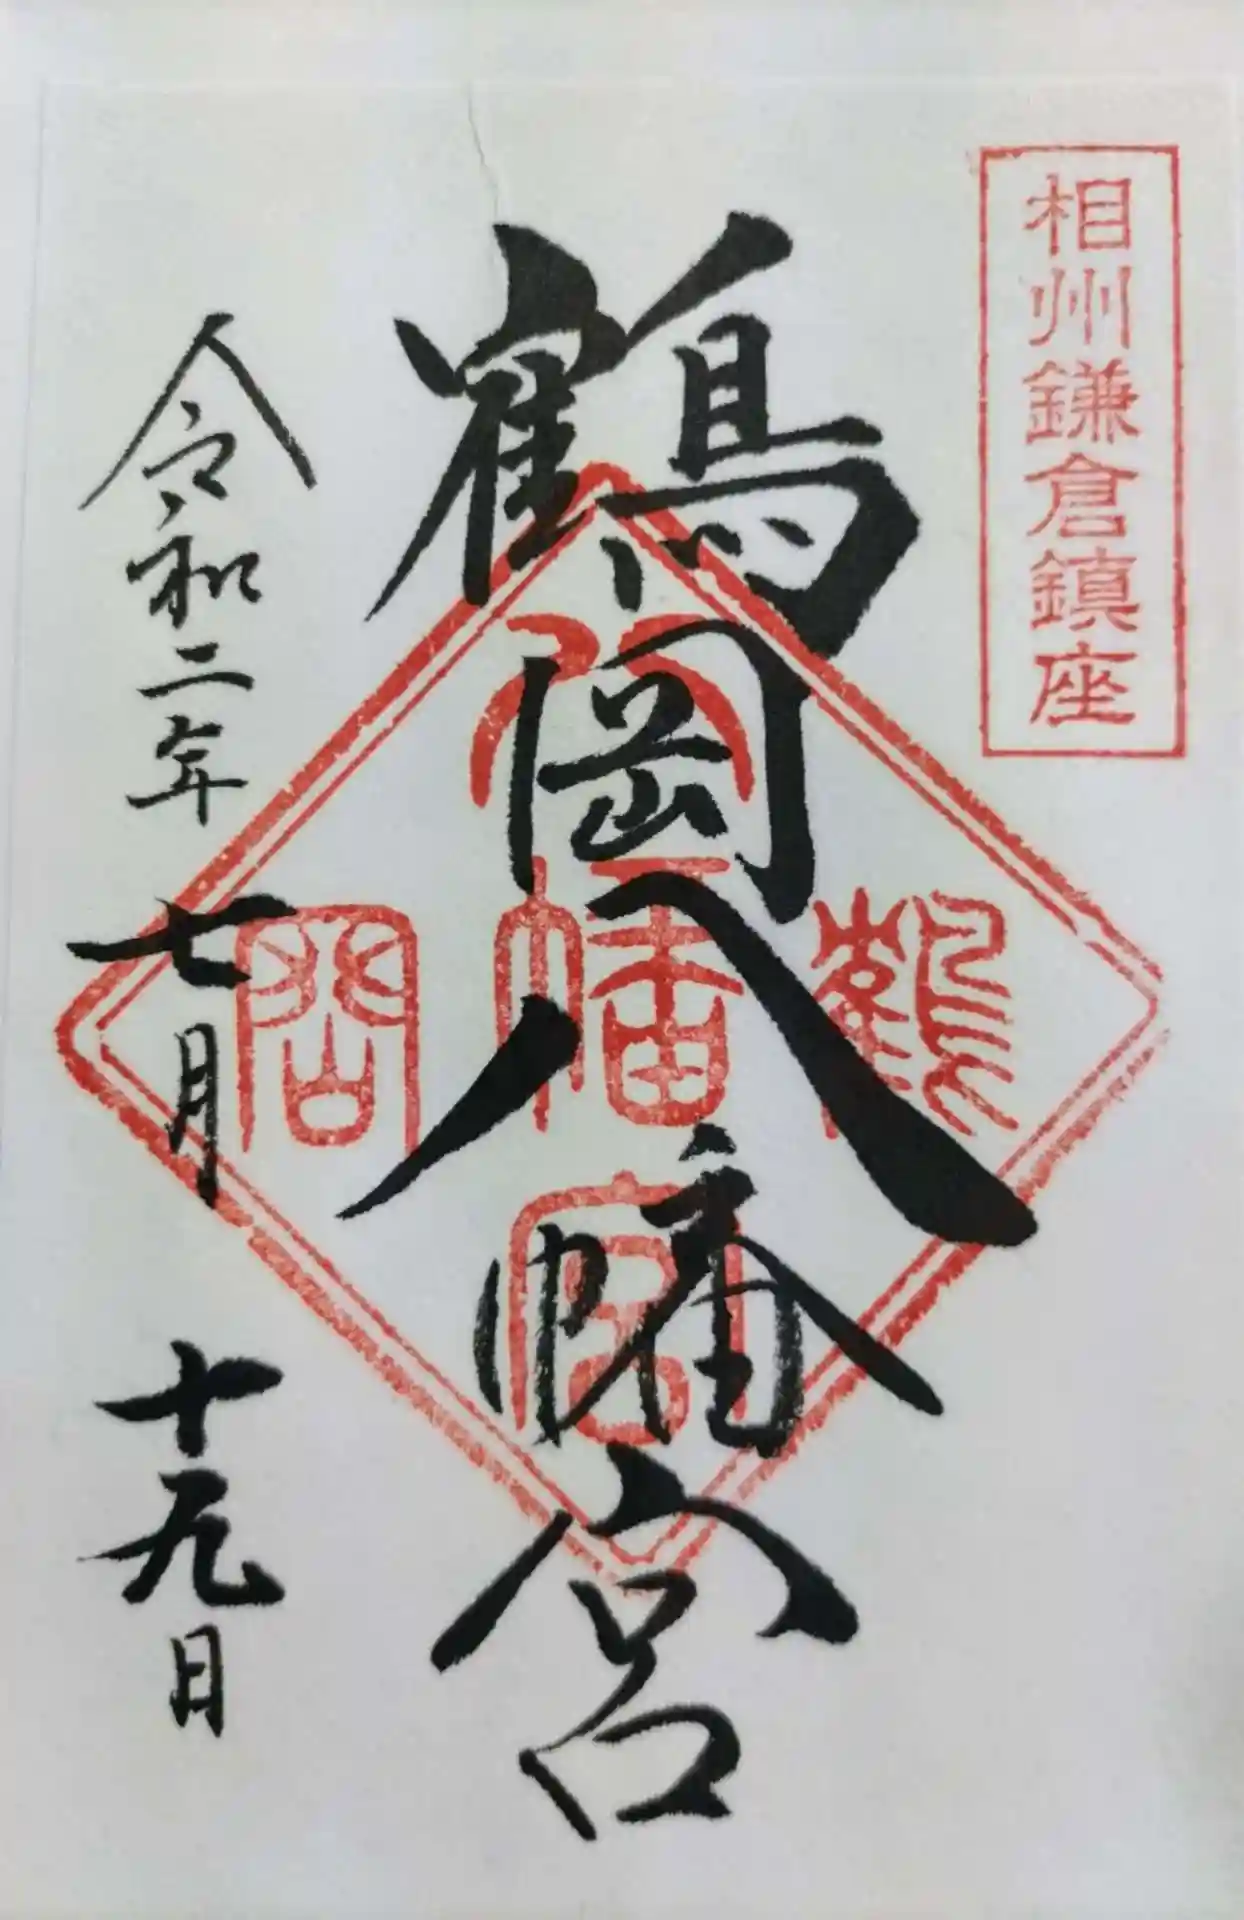 相州鎌倉鎮座
鶴岡八幡宮
鶴
八幡宮
岡
令和二年 七月 十九日